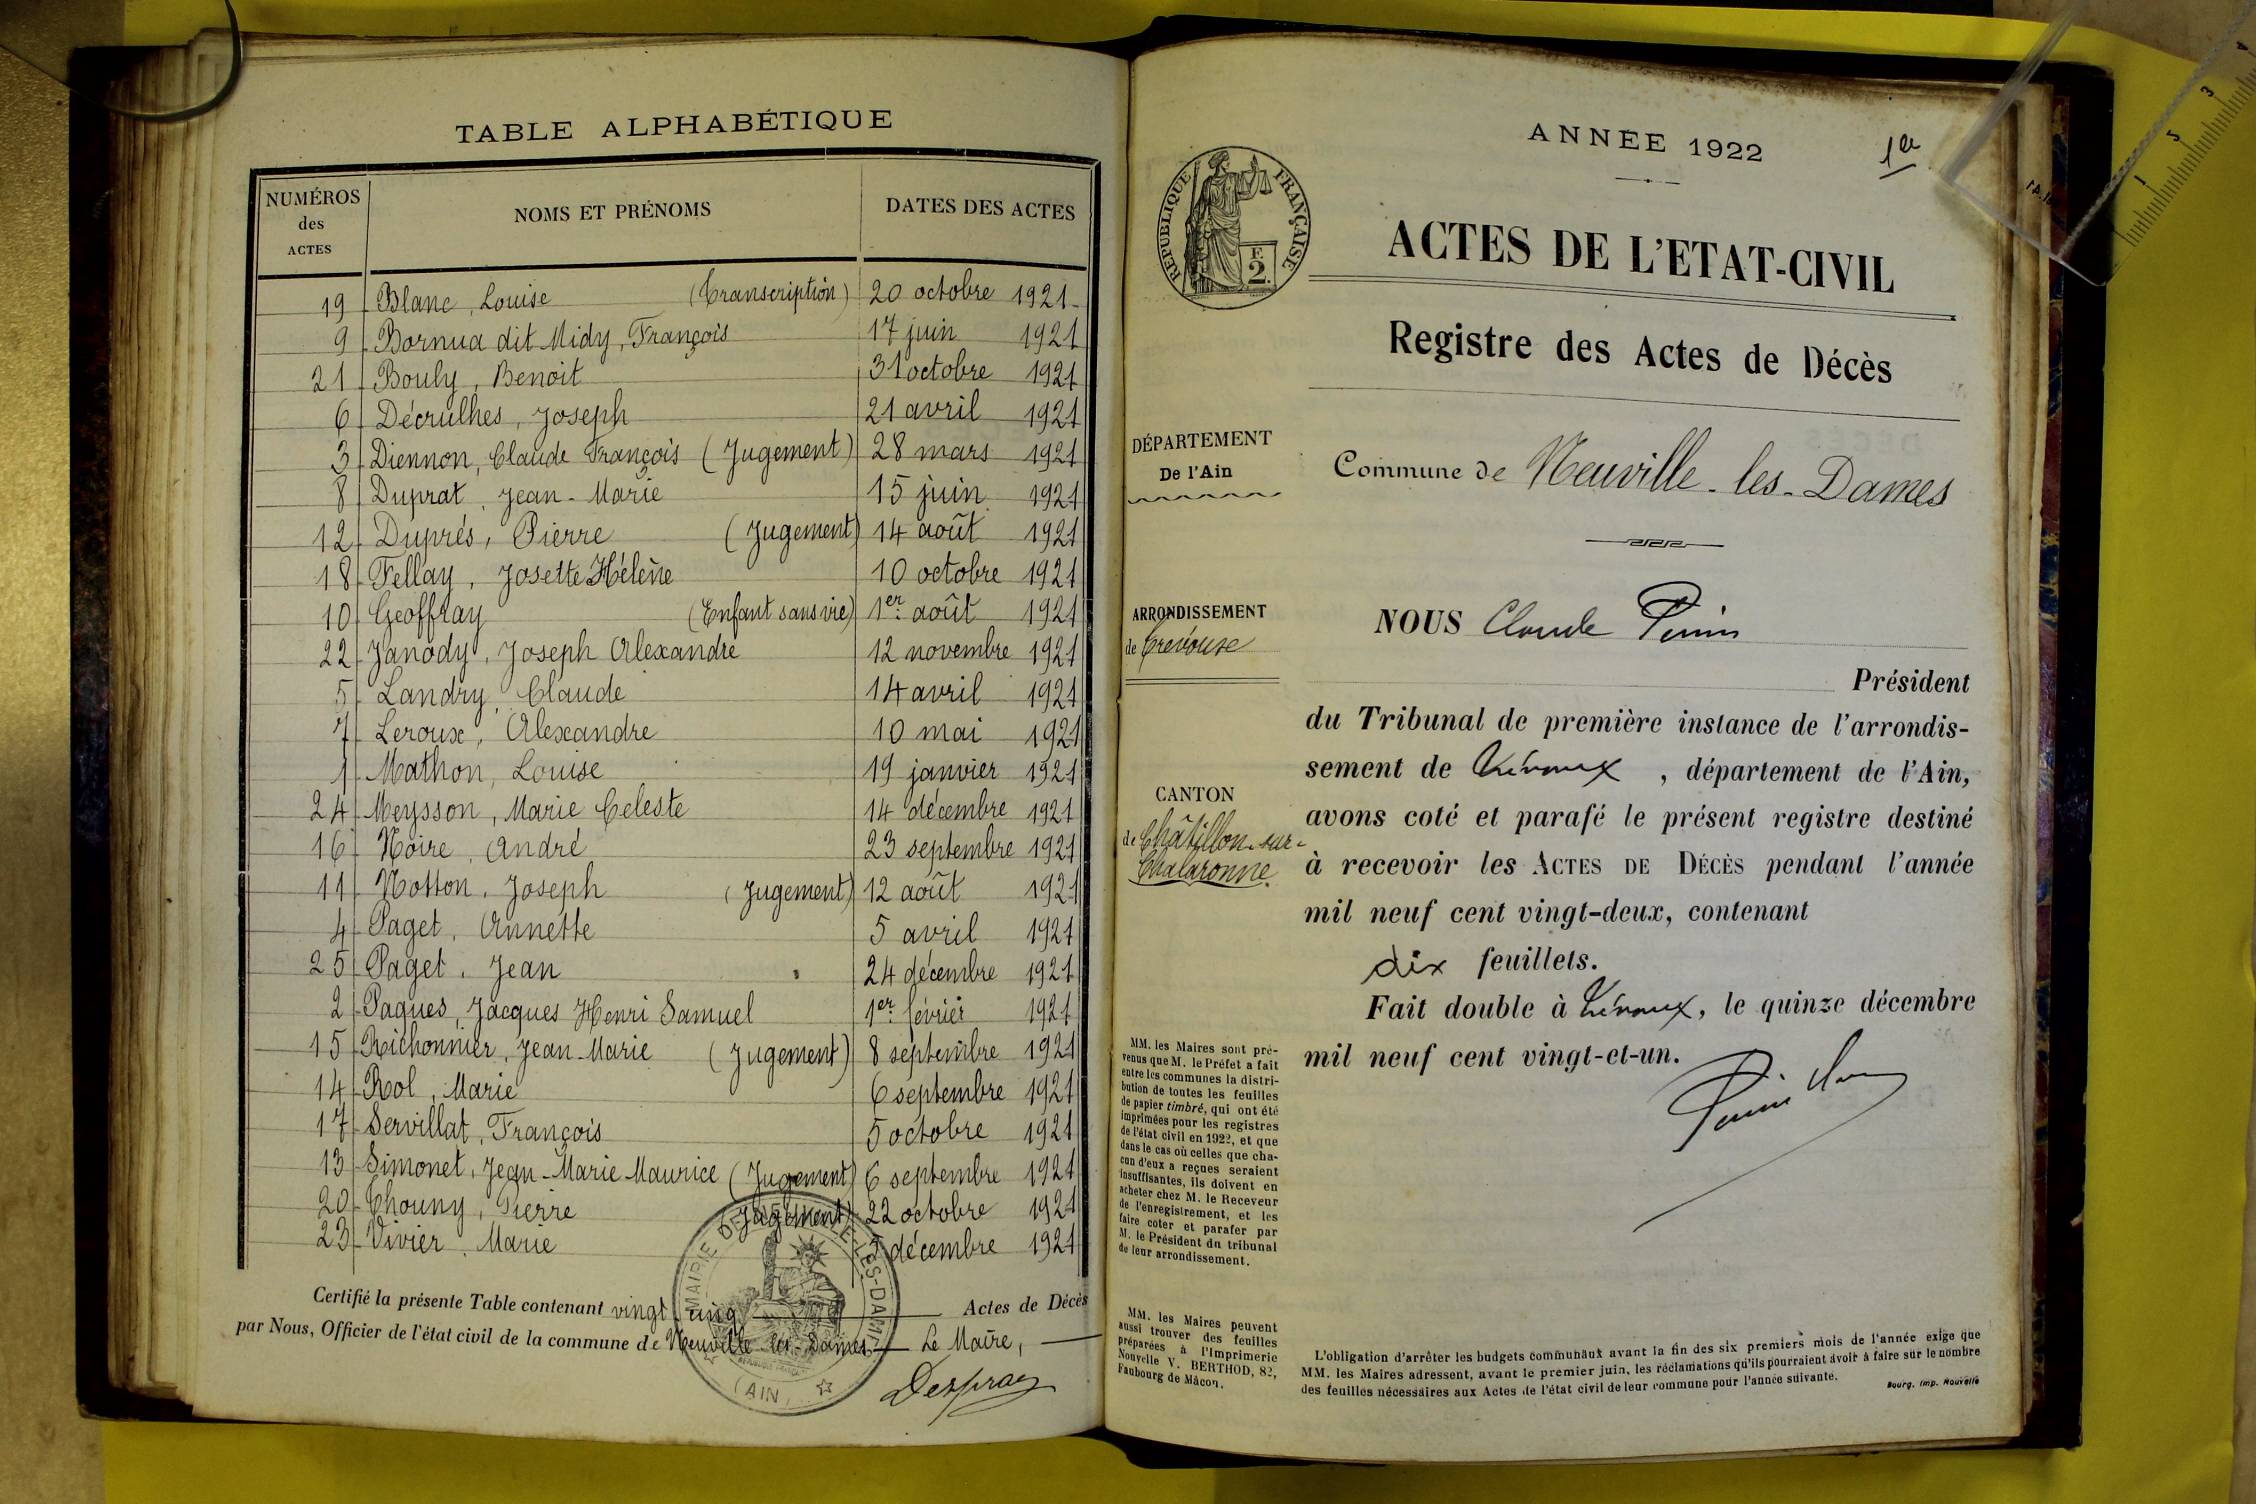 TABLE ALPHABÉTIQUE
NUMÉROS
des
ACTES
NOMS ET PRÉNOMS
DATES DES ACTES
19 Blanc, Louise (Transcription) 20 octobre 1921
9 Bornua dit Midy, François 17 juin 1921
21 Bouly, Benoit 31 octobre 1921
6 Décrulhes, Joseph 21 avril 1921
3 Diennon, Claude François (Jugement) 28 mars 1921
8 Duprat, Jean-Marie 15 juin 1921
12 Duprés, Pierre (Jugement) 14 août 1921
18 Fellay, Josette Hélène 10 octobre 1921
10 Geoffray (Enfant sans vie) 1er août 1921
22 Janody, Joseph Alexandre 12 novembre 1921
5 Landry, Claude 14 avril 1921
7 Leroux, Alexandre 10 mai 1921
1 Mathon, Louise 19 janvier 1921
24 Meysson, Marie Celeste 14 décembre 1921
16 Noire, André 23 septembre 1921
11 Notton, Joseph (Jugement) 12 août 1921
4 Paget, Annette 5 avril 1921
25 Paget, Jean 24 décembre 1921
2 Pagues, Jacques Henri Samuel 1er février 1921
15 Richonnier, Jean-Marie (Jugement) 8 septembre 1921
14 Rol, Marie 6 septembre 1921
17 Servillat, François 5 octobre 1921
13 Simonet, Jean-Marie Maurice (Jugement) 6 septembre 1921
20 Chouny, Pierre Jugement) 22 octobre 1921
23 Vivier, Marie décembre 1921
Certifié la présente Table contenant vingt cinq Actes de Décès
par Nous, Officier de l'état civil de la commune de Neuville-les-Dames Le Maire,
MAIRIE DE NEUVILLE-LES-DAMES
(AIN)
ANNÉE 1922
1er
RÉPUBLIQUE FRANÇAISE
F.
2.
ACTES DE L'ETAT-CIVIL
Registre des Actes de Décès
DÉPARTEMENT
De l'Ain
Commune de Neuville-les-Dames
ARRONDISSEMENT
de Trévoux
NOUS Claude
Président
du Tribunal de première instance de l'arrondis-
sement de Trévoux, département de l'Ain,
avons coté et parafé le présent registre destiné
à recevoir les ACTES DE DÉCÈS pendant l'année
mil neuf cent vingt-deux, contenant
dix feuillets.
Fait double à Trévoux, le quinze décembre
mil neuf cent vingt-et-un.
CANTON
de Châtillon-sur-
Chalaronne
MM. les Maires sont pré-
venus que M. le Préfet a fait
entre les communes la distri-
bution de toutes les feuilles
de papier timbré, qui ont été
imprimées pour les registres
de l'état civil en 1922, et que
dans le cas où celles que cha-
cun d'eux a reçues seraient
insuffisantes, ils doivent en
acheter chez M. le Receveur
de l'enregistrement, et les
faire coter et parafer par
M. le Président du tribunal
de leur arrondissement.
MM. les Maires peuvent
aussi trouver des feuilles
préparées à l'Imprimerie
Nouvelle V. BERTHOD, 82,
Faubourg de Mâcon.
L'obligation d'arrêter les budgets communaux avant la fin des six premiers mois de l'année exige que
MM. les Maires adressent, avant le premier juin, les réclamations qu'ils pourraient avoir à faire sur le nombre
des feuilles nécessaires aux Actes de l'état civil de leur commune pour l'année suivante.
Bourg. Imp. Nouvelle